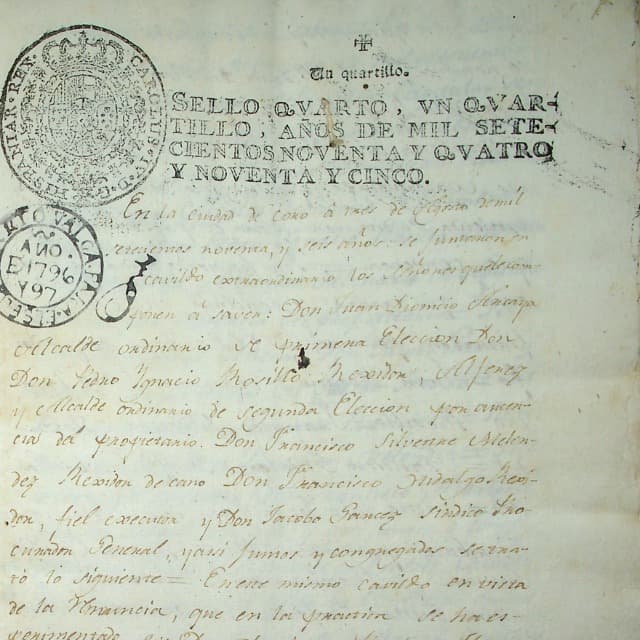 Un quartillo.
SELLO QVARTO, VN QVAR-
TILLO, AÑOS DE MIL SETE-
CIENTOS NOVENTA Y QVATRO
Y NOVENTA Y CINCO.
AÑO
D 1796
Y 97
En la ciudad de coro à tres de de mil
setecientos noventa, y seis años se juntaron en
cavildo extraordinario los señores que lo com-
ponen à saver: Don Juan Dionicio
Alcalde ordinario de primera Eleccion Don
Don Pedro Ygnacio Rosillo Rexidor, Alferez
y Alcalde ordinario de segunda Eleccion por ausen-
cia del propietario. Don Francisco Silvestre Melen-
dez Rexidor decano Don Francisco Hidalgo Rexi-
dor, fiel executor y Don Jacobo Garcez Sindico Pro-
curador General, y asi juntos y congregados se tra-
tó lo siguiente = En este mismo cavildo en vista
de la que en la practica se ha es-
perimentado